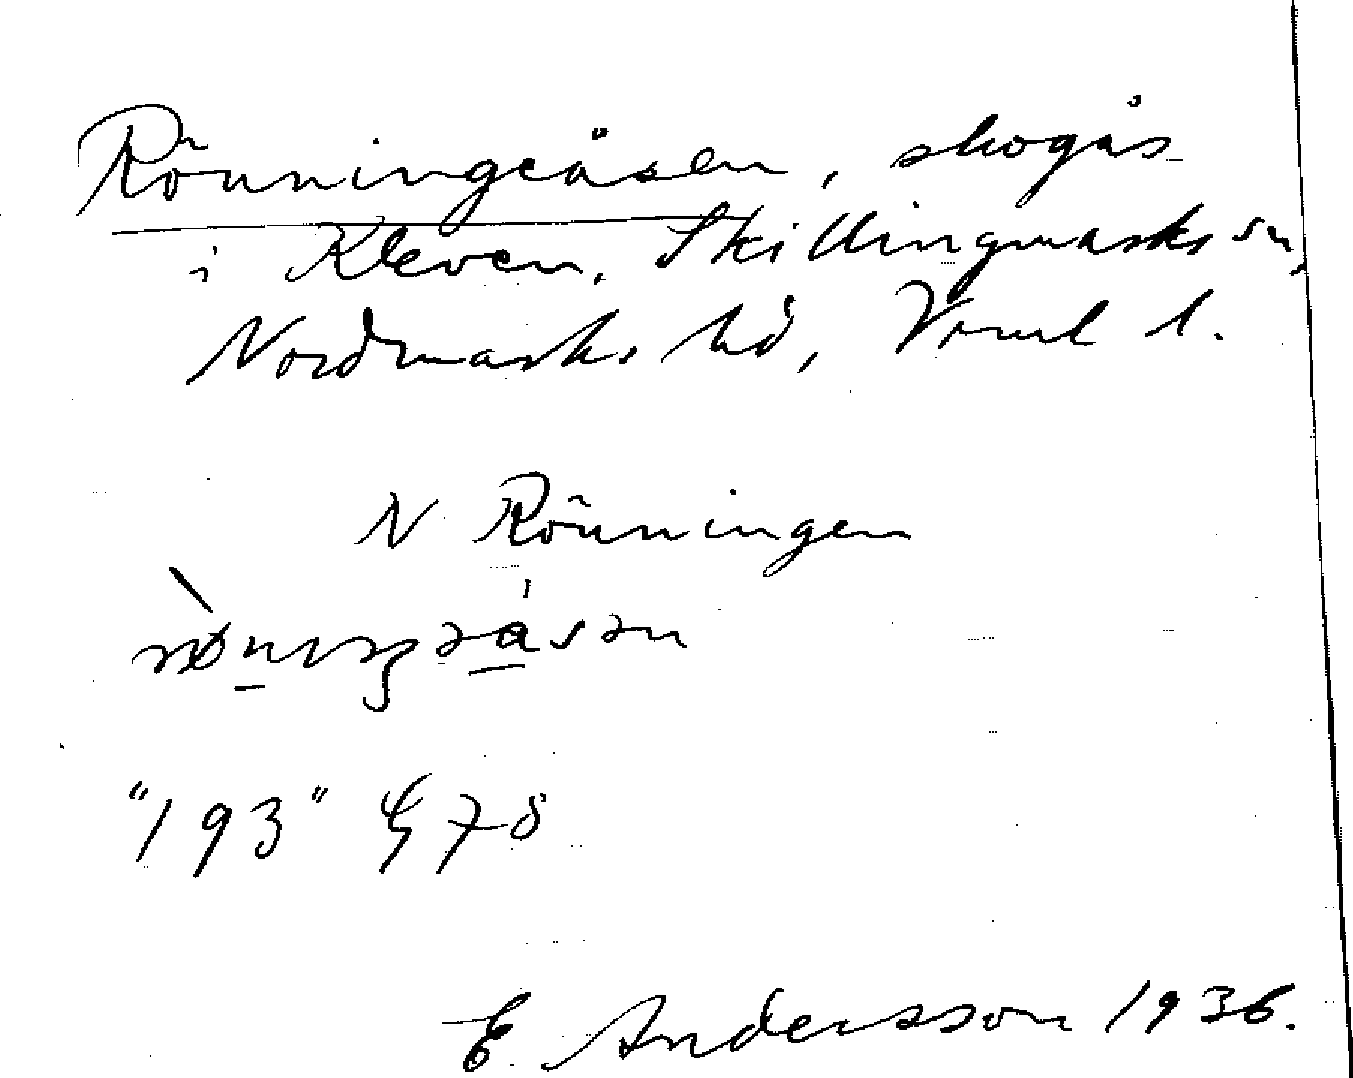 Rönningeåsen, skogås
i Kleven, Skillingmarks sn,
Nordmarks hd, Vrml l.
N Rönningen
"193" § 78
E. Andersson 1936.